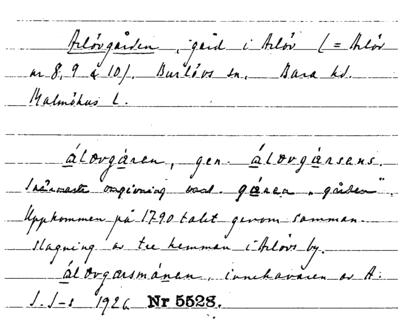 Arlövgården, gård i Arlöv (= Arlöv
nr 8, 9 & 10). Burlövs sn, Bara hd.
Malmöhus l.
álovgåren, gen. álovgårsens.
I närmaste omgivning vard. gåren "gården".
Uppkommen på 1790 talet genom samman-
slagning av tre hemman i Arlövs by.
álovgårsmánen, innehavaren av A.
I. I-s 1926 Nr 5528.